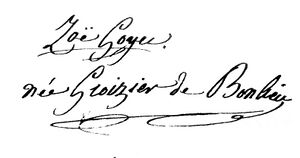 Zoë Goyet.
née Croizier de Bonlieu